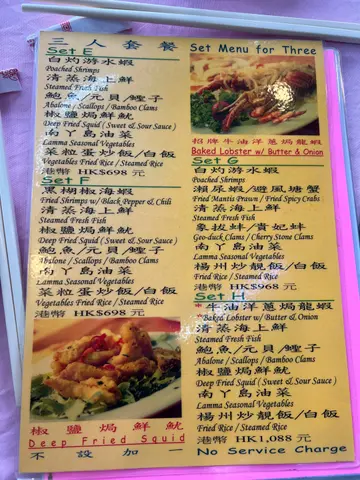 三人套餐
Set E
白灼游水蝦
Poached Shrimps
清蒸海上鮮
Steamed Fresh Fish
鮑魚/元貝/蟶子
Abalone / Scallops / Bamboo Clams
椒鹽焗鮮魷
Deep Fried Squid ( Sweet & Sour Sauce )
南丫島油菜
Lamma Seasonal Vegetables
菜粒蛋炒飯/白飯
Vegetables Fried Rice / Steamed Rice
港幣 HK$698 元
Set F
黑椒椒海蝦
Fried Shrimps w/ Black Pepper & Chili
清蒸海上鮮
Steamed Fresh Fish
椒鹽焗鮮魷
Deep Fried Squid ( Sweet & Sour Sauce )
鮑魚/元貝/蟶子
Abalone / Scallops / Bamboo Clams
南丫島油菜
Lamma Seasonal Vegetables
菜粒蛋炒飯/白飯
Vegetables Fried Rice / Steamed Rice
港幣 HK$698 元
椒鹽焗鮮魷
Deep Fried Squid
不設加一
Set Menu for Three
招牌牛油洋蔥焗龍蝦
Baked Lobster w/ Butter & Onion
Set G
白灼游水蝦
Poached Shrimps
瀨尿蝦/避風塘蟹
Fried Mantis Prawn / Fried Spicy Crabs
清蒸海上鮮
Steamed Fresh Fish
象拔蚌/貴妃蚌
Geo-duck Clams / Cherry Stone Clams
南丫島油菜
Lamma Seasonal Vegetables
楊州炒靚飯/白飯
Fried Rice / Steamed Rice
港幣 HK$968 元
Set H
*牛油洋蔥焗龍蝦
*Baked Lobster w/ Butter & Onion
清蒸海上鮮
Steamed Fresh Fish
鮑魚/元貝/蟶子
Abalone / Scallops / Bamboo Clams
椒鹽焗鮮魷
Deep Fried Squid ( Sweet & Sour Sauce )
南丫島油菜
Lamma Seasonal Vegetables
楊州炒靚飯/白飯
Fried Rice / Steamed Rice
港幣 HK1,088 元
No Service Charge